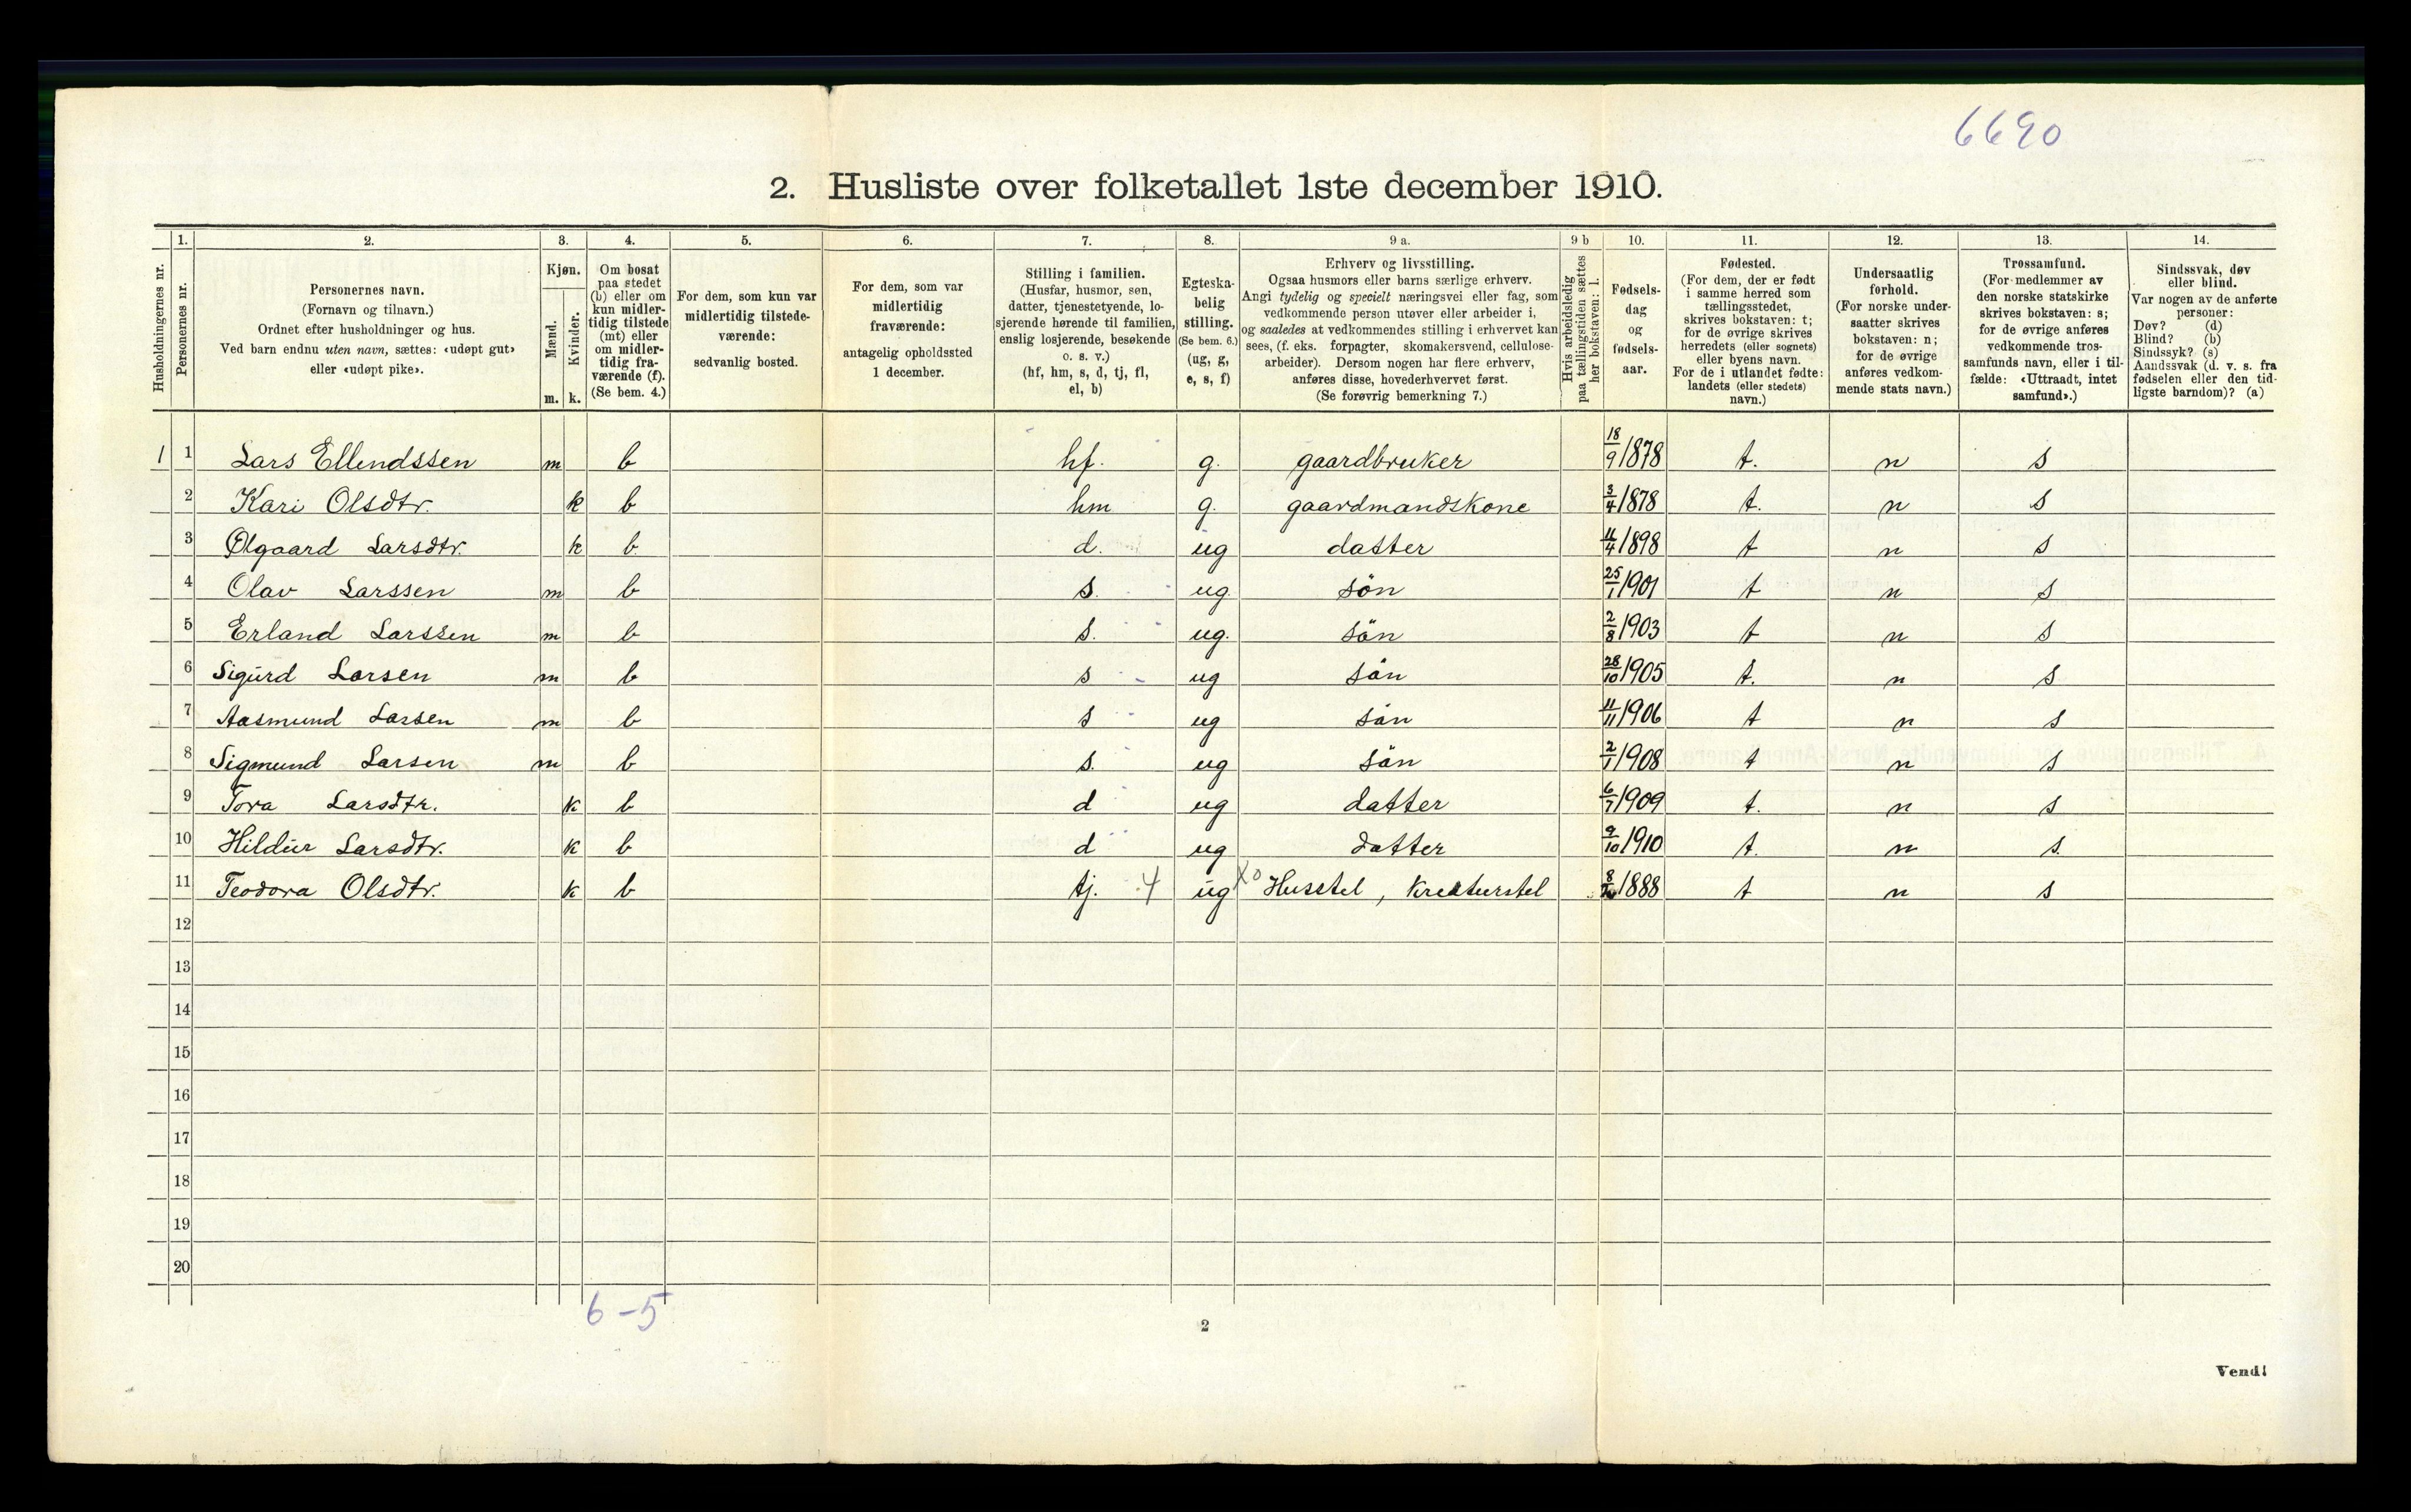 6690
2. Husliste over folketallet 1ste december 1910.
Husholdningernes nr.
1. Personernes nr.
2. Personernes navn.
(Fornavn og tilnavn.)
Ordnet efter husholdninger og hus.
Ved barn endnu uten navn, sættes: «udøpt gut»
eller «udøpt pike».
3. Kjøn.
Mænd. m.
Kvinder. k.
4. Om bosat
paa stedet
(b) eller om
kun midler-
tidig tilstede
(mt) eller
om midler-
tidig fra-
værende (f).
(Se bem. 4.)
5. For dem, som kun var
midlertidig tilstede-
værende:
sedvanlig bosted.
6. For dem, som var
midlertidig
fraværende:
antagelig opholdssted
1 december.
7. Stilling i familien.
(Husfar, husmor, søn,
datter, tjenestetyende, lo-
sjerende hørende til familien,
enslig losjerende, besøkende
o. s. v.)
(hf, hm, s, d, tj, fl,
el, b)
8. Egteska-
belig
stilling.
(Se bem. 6.)
(ug, g,
e, s, f)
9 a. Erhverv og livsstilling.
Ogsaa husmors eller barns særlige erhverv.
Angi tydelig og specielt næringsvei eller fag, som
vedkommende person utøver eller arbeider i,
og saaledes at vedkommendes stilling i erhvervet kan
sees, (f. eks. forpagter, skomakersvend, cellulose-
arbeider). Dersom nogen har flere erhverv,
anføres disse, hovederhvervet først.
(Se forøvrig bemerkning 7.)
9 b Hvis arbeidsledig
paa tællingstiden sættes
her bokstaven: l.
10. Fødsels-
dag
og
fødsels-
aar.
11. Fødested.
(For dem, der er født
i samme herred som
tællingsstedet,
skrives bokstaven: t;
for de øvrige skrives
herredets (eller sognets)
eller byens navn.
For de i utlandet fødte:
landets (eller stedets)
navn.)
12. Undersaatlig
forhold.
(For norske under-
saatter skrives
bokstaven: n;
for de øvrige
anføres vedkom-
mende stats navn.)
13. Trossamfund.
(For medlemmer av
den norske statskirke
skrives bokstaven: s;
for de øvrige anføres
vedkommende tros-
samfunds navn, eller i til-
fælde: «Uttraadt, intet
samfund».)
14. Sindssvak, døv
eller blind.
Var nogen av de anførte
personer:
Døv? (d)
Blind? (b)
Sindssyk? (s)
Aandssvak (d. v. s. fra
fødselen eller den tid-
ligste barndom)? (a)
1 1 Lars Ellendssen m b hf. g. gaardbruker 18/9 1878 t. n s
2 Kari Olsdtr. k b hm g. gaardmandskone 3/4 1878 t. n s
3 Ølgaard Larsdtr. k b d. ug datter 11/4 1898 t n s
4 Olav Larssen m b s. ug søn 25/1 1901 t n s
5 Erland Larssen m b s. ug. søn 2/8 1903 t n s
6 Sigurd Larsen m b s ug søn 28/10 1905 t. n s
7 Aasmund Larsen m b s ug søn 11/11 1906 t n s
8 Sigmund Larsen m b s. ug søn 2/1 1908 t n s
9 Tora Larsdtr. k b d ug datter 6/7 1909 t. n s
10 Hildur Larsdtr. k b d ug datter 9/10 1910 t. n s.
11 Teodora Olsdtr. k b tj. 4 ug x0 Husstel, Kreaturstel 1888 t n s
12
13
14
15
16
17
18
19
20
6-5
2
Vend!